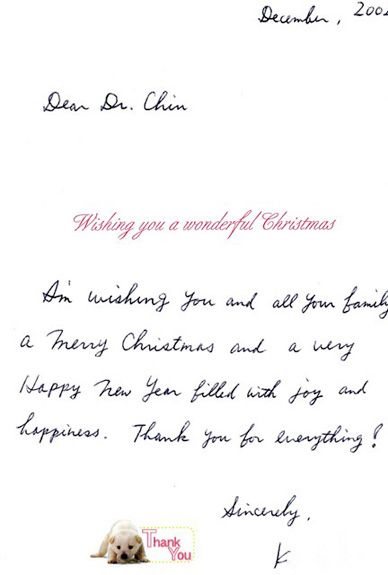 December,
Dear Dr. Chin
Wishing you a wonderful Christmas
I'm wishing you and all your family
a Merry Christmas and a very
Happy New Year filled with joy and
happiness. Thank you for everything!
Sincerely,
K
Thank
You